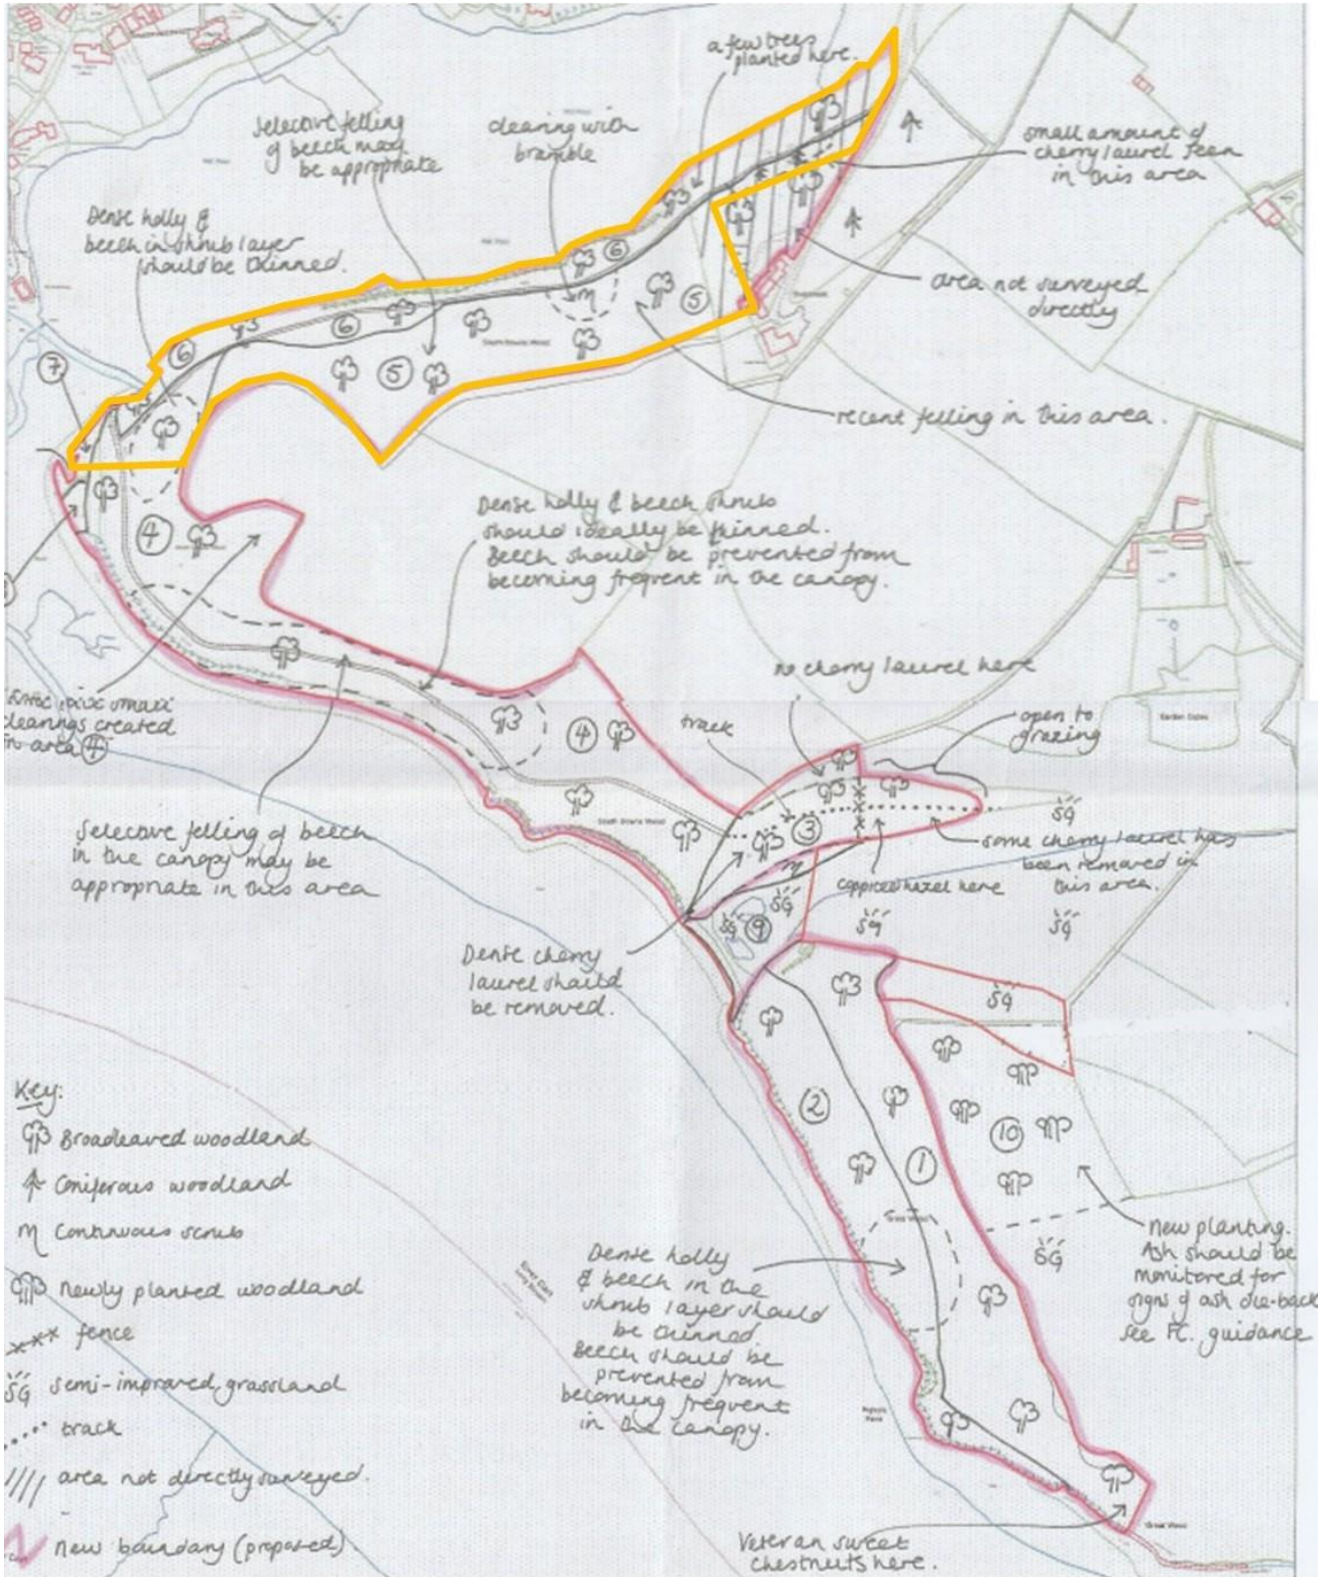 a few trees
planted here.
Selective felling
of beech may
be appropriate
clearing with
bramble
small amount of
cherry laurel seen
in this area
Dense holly &
beech in shrub layer
should be thinned.
area not surveyed
directly
6
5
6
6
5
7
recent felling in this area.
Dense holly & beech shrub
should ideally be thinned.
Beech should be prevented from
becoming frequent in the canopy.
4
no cherry laurel here
clearings created
in area 4
track
open to
grazing
4
South Downs Wood
SG
3
some cherry laurel has
been removed in
this area.
Selective felling of beech
in the canopy may be
appropriate in this area
coppiced hazel here
SG
SG
9
SG
SG
Dense cherry
laurel should
be removed.
SG
2
10
1
Key:
Broadleaved woodland
Coniferous woodland
Continuous scrub
Newly planted woodland
fence
SG semi-improved grassland
track
area not directly surveyed.
New boundary (proposed).
Great Wood
SG
New planting.
Ash should be
monitored for
signs of ash die-back
see FC. guidance
Dense holly
& beech in the
shrub layer should
be thinned.
Beech should be
prevented from
becoming frequent
in the canopy.
Great Wood
Veteran sweet
chestnuts here.